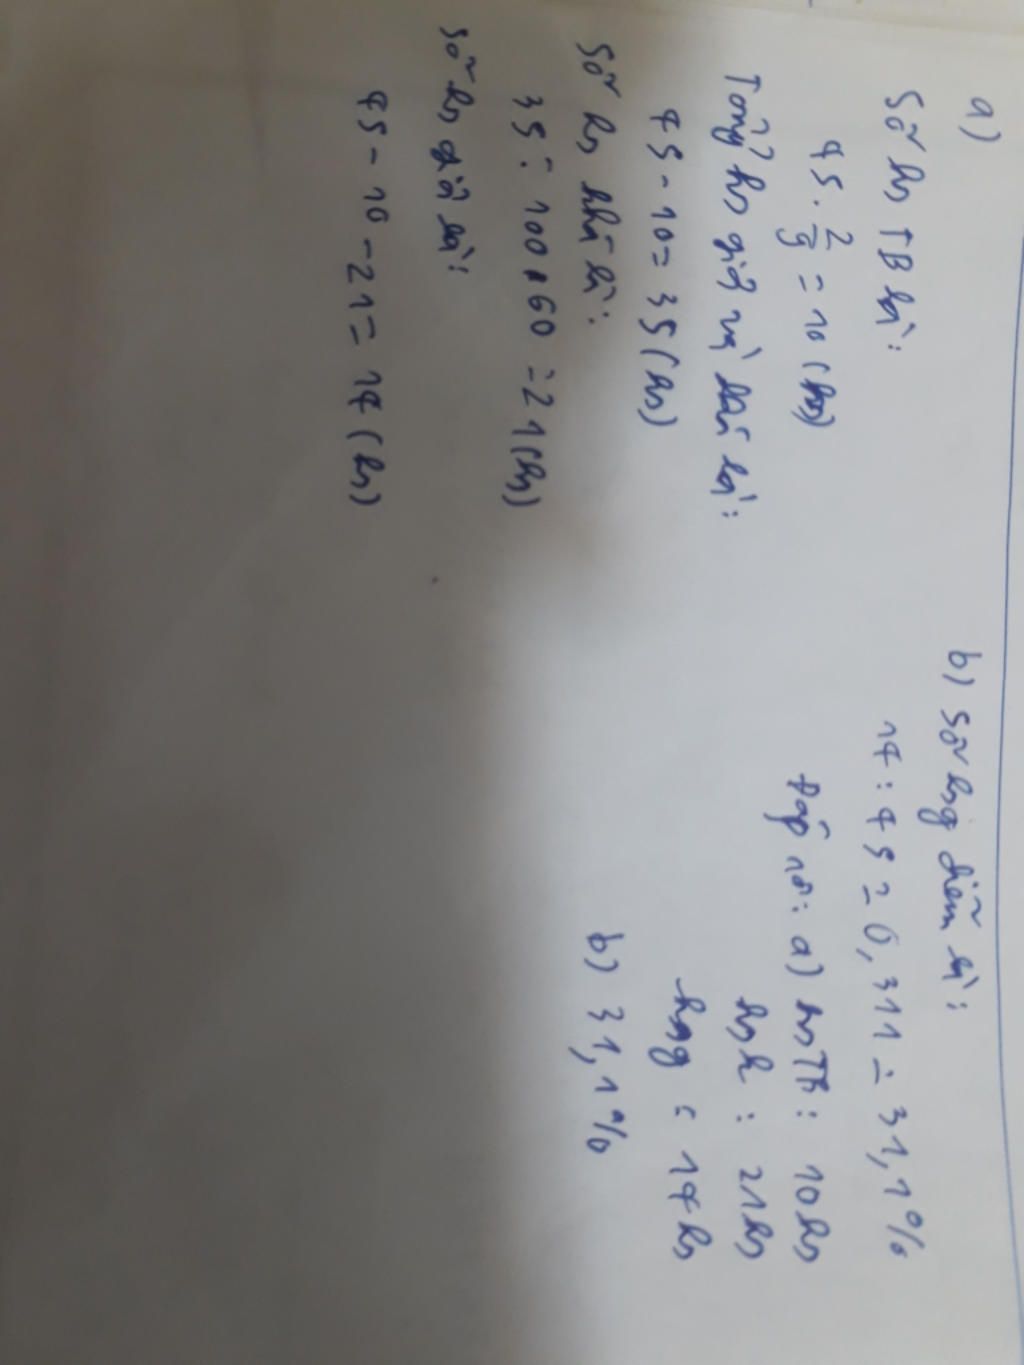 a)
Số hs TB là:
45 . 2/9 = 10 (hs)
Tổng hs giỏi và khá là:
45 - 10 = 35 (hs)
Số hs khá là:
35 : 100 . 60 = 21 (hs)
Số hs giỏi là:
45 - 10 - 21 = 14 (hs)
b) Số hsg chiếm là:
14 : 45 = 0,311 = 31,1%
Đáp số: a) hsTB: 10hs
hsk : 21hs
hsg : 14hs
b) 31,1%